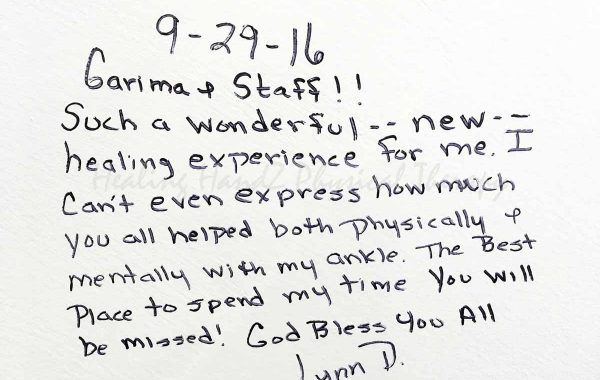 9-29-16
Garima & Staff!!
Such a wonderful -- new --
healing experience for me. I
Can't even express how much
you all helped both physically &
mentally with my ankle. The Best
Place to spend my time You will
be missed! God Bless You All
Lynn D.
Healing Handz Physical Therapy